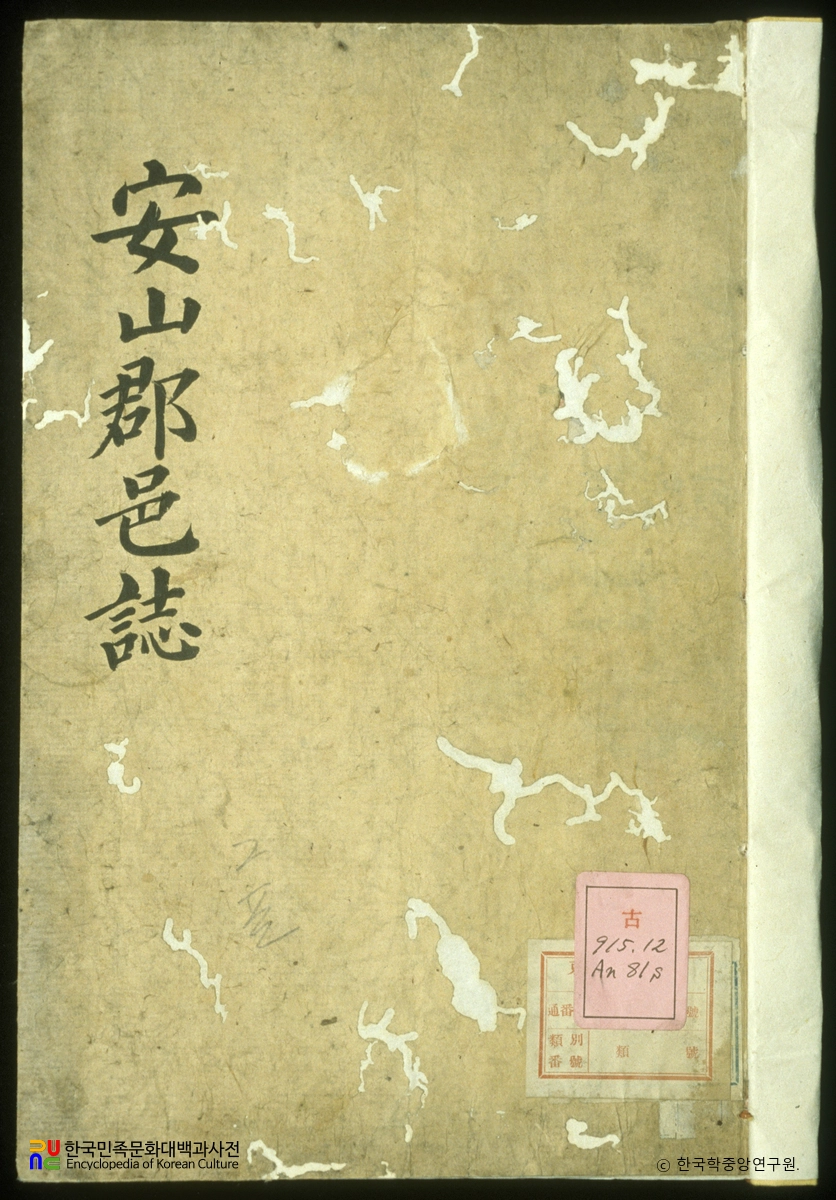 安山郡邑誌
古
915.12
An 81s
通番
號
類別
番號
類
號
한국민족문화대백과사전
Encyclopedia of Korean Culture
© 한국학중앙연구원.